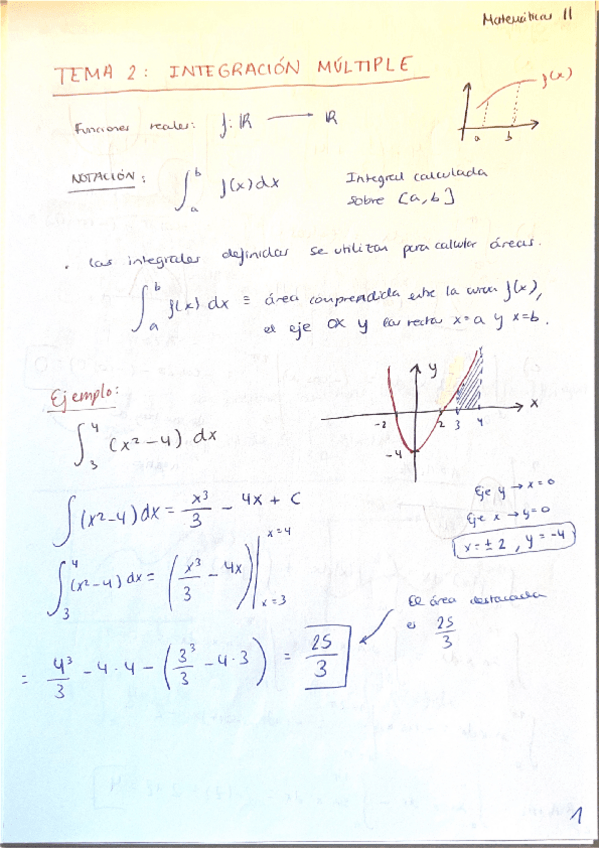 Matemáticas II
TEMA 2: INTEGRACIÓN MÚLTIPLE
f(x)
a b
Funciones reales: f: ℝ ⟶ ℝ
NOTACIÓN: ∫_a^b f(x) dx Integral calculada
sobre [a, b]
. Las integrales definidas se utilizan para calcular áreas.
∫_a^b f(x) dx ≡ área comprendida entre la curva f(x),
el eje OX y las rectas x=a y x=b.
Ejemplo:
∫_3^4 (x²-4) dx
y
x
-2 2 3 4
-4
∫(x²-4) dx = x³/3 - 4x + C
Eje y → x=0
Eje x → y=0
x=±2, y=-4
∫_3^4 (x²-4) dx = (x³/3 - 4x) |_{x=3}^{x=4}
El área destacada
es 25/3
= 4³/3 - 4·4 - (3³/3 - 4·3) = 25/3
1